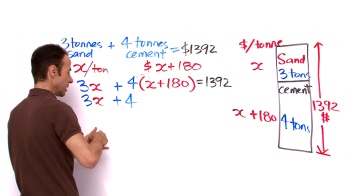 3 tonnes + 4 tonnes
sand cement = $1392
$x/ton $x+180
3x + 4(x+180)=1392
3x + 4
$/tonne
x
Sand
3 tons
cement
x+180 4 tons
1392
$